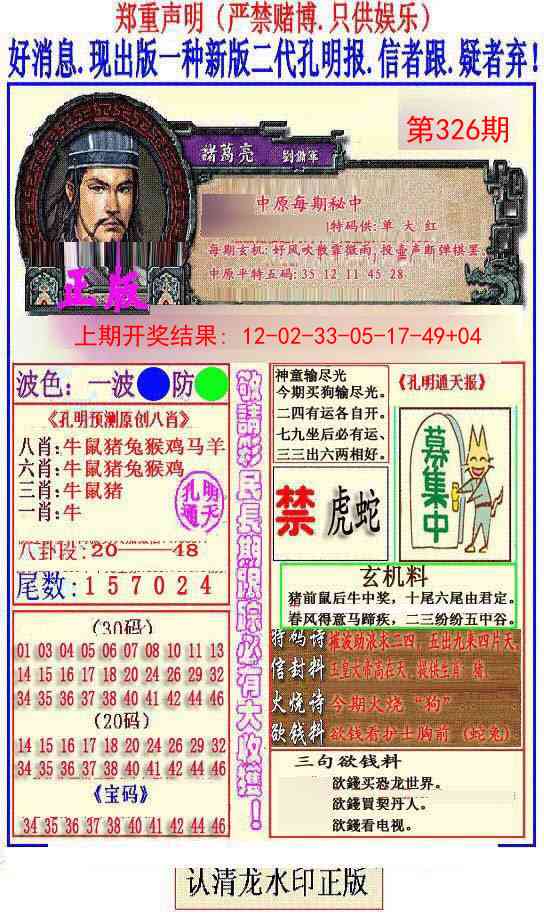 郑重声明（严禁赌博.只供娱乐）
好消息.现出版一种新版二代孔明报.信者跟.疑者弃!
第326期
諸萬亮 劉備軍
中原每期秘中
特码供:单 大 红
每期玄机:好风吹散霏微雨,投壶声断弹棋罢.
中原平特五码:35 12 11 45 28
正版
上期开奖结果：12-02-33-05-17-49+04
波色：一波 防
《孔明预测原创八肖》
八肖:牛鼠猪兔猴鸡马羊
六肖:牛鼠猪兔猴鸡
三肖:牛鼠猪
一肖:牛
孔明
通天
八卦段:20——48
尾数:157024
(30码)
01 03 04 05 06 07 08 10 11 13
14 15 16 17 18 20 24 26 29 32
34 35 36 37 38 40 41 42 44 46
(20码)
14 15 16 17 18 20 24 26 29 32
34 35 36 37 38 40 41 42 44 46
《宝码》
34 35 36 37 38 40 41 42 44 46
敬請彩民長期跟踪必有大收獲！
神童输尽光
今期买狗输尽光。
二四有运各自开。
七九坐后必有运、
三三出六两相好。
《孔明通天报》
禁 虎蛇
募集中
玄机料
猪前鼠后牛中奖，十尾六尾由君定。
春风得意马蹄疾，二三纷纷五中谷。
特码诗 摧波助浪求二四，五出九来四片天
信封料 玉皇大帝高在天，提供生肖：猪、
火烧诗 今期火烧“狗”
欲钱料 欲钱看护士胸前（蛇兔）
三句欲钱料
欲錢买恐龙世界。
欲錢買契丹人。
欲錢看电视。
认清龙水印正版